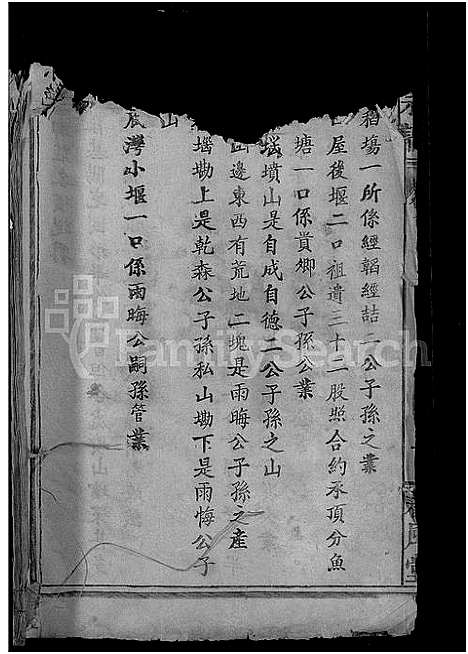 稻塲一所係經韜經誥二公子孫之業
屋後堰二口祖遺三十二股照合約承頂分魚
塘一口係賞鄉公子孫公業
墳山是自成自德二公子孫之山
山邊東西有荒地二塊是雨晦公子孫之產
墦墈上是乾森公子孫私山墈下是雨悔公子
山
灣小堰一口係雨晦公嗣孫管業
FamilySearch